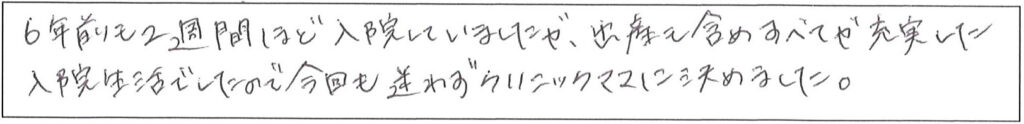 6年前も2週間ほど入院していましたが、出産も含めすべてが充実した
入院生活でしたので今回も迷わずクリニックママに決めました。